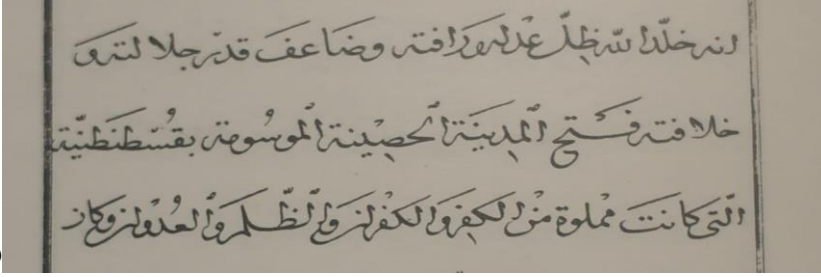 انه خلّد الله ظلّ عدله ورافته وضاعف قدر جلالته و
خلافته فتح المدينة الحصينة الموسومة بقسطنطنيّة
الّتى كانت مملوة من الكفر والكفران والظّلم والعدوان وكان